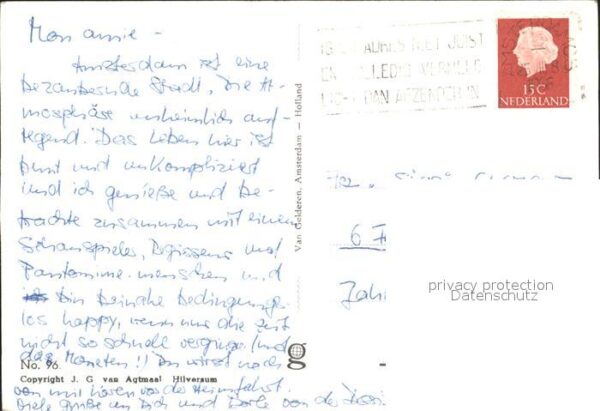 Mon amie -
Amsterdam ist eine
bezaubernde Stadt, die At-
mosphäre unheimlich auf-
regend. Das Leben hier ist
bunt und unkompliziert
und ich genieße und be-
trachte zusammen mit einem
Schauspieler, Regisseur und
Pantomime-menschen und
bin beinahe bedingungs-
los happy, wenn nur die Zeit
nicht so schnell verginge (und
das Moneten!! Du wirst noch
von mir hören vor der Heimfahrt.
Viele Grüße an Dich und von der
No. 96.
Copyright J. G. van Agtmaal Hilversum
Van Gelderen, Amsterdam — Holland
g
ADRES NIET JUIST
EN VOLLEDIG VERMELD
DAN AFZENDER IN
15 C
NEDERLAND
6 F
privacy protection
Datenschutz